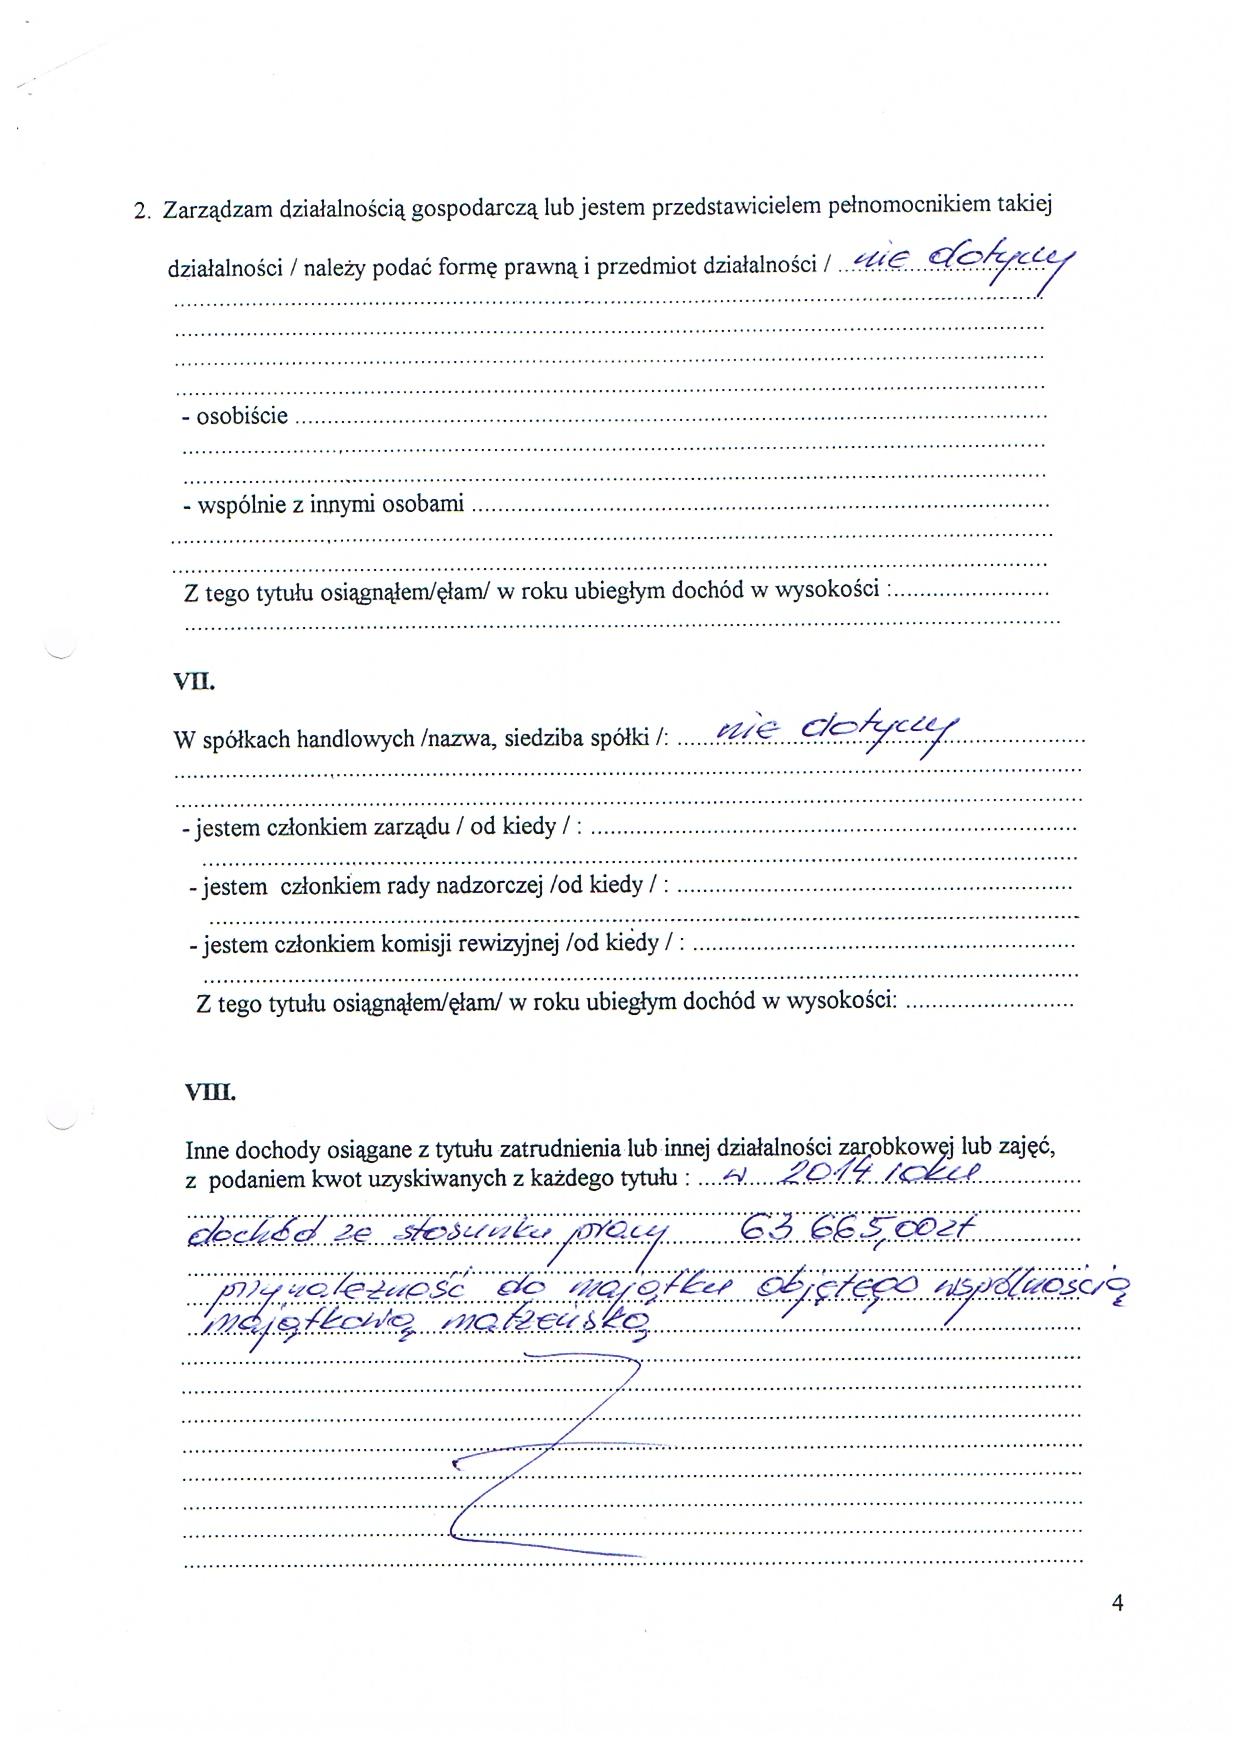 2. Zarządzam działalnością gospodarczą lub jestem przedstawicielem pełnomocnikiem takiej
działalności / należy podać formę prawną i przedmiot działalności / ..nie dotyczy
- osobiście
- wspólnie z innymi osobami
Z tego tytułu osiągnąłem/ęłam/ w roku ubiegłym dochód w wysokości :
VII.
W spółkach handlowych /nazwa, siedziba spółki /: nie dotyczy
- jestem członkiem zarządu / od kiedy / :
- jestem członkiem rady nadzorczej /od kiedy / :
- jestem członkiem komisji rewizyjnej /od kiedy / :
Z tego tytułu osiągnąłem/ęłam/ w roku ubiegłym dochód w wysokości:
VIII.
Inne dochody osiągane z tytułu zatrudnienia lub innej działalności zarobkowej lub zajęć,
z podaniem kwot uzyskiwanych z każdego tytułu : w 2014 roku
dochód ze stosunku pracy 63 665,00 zł
przynależność do majątku objętego wspólnością
majątkową małżeńską
4